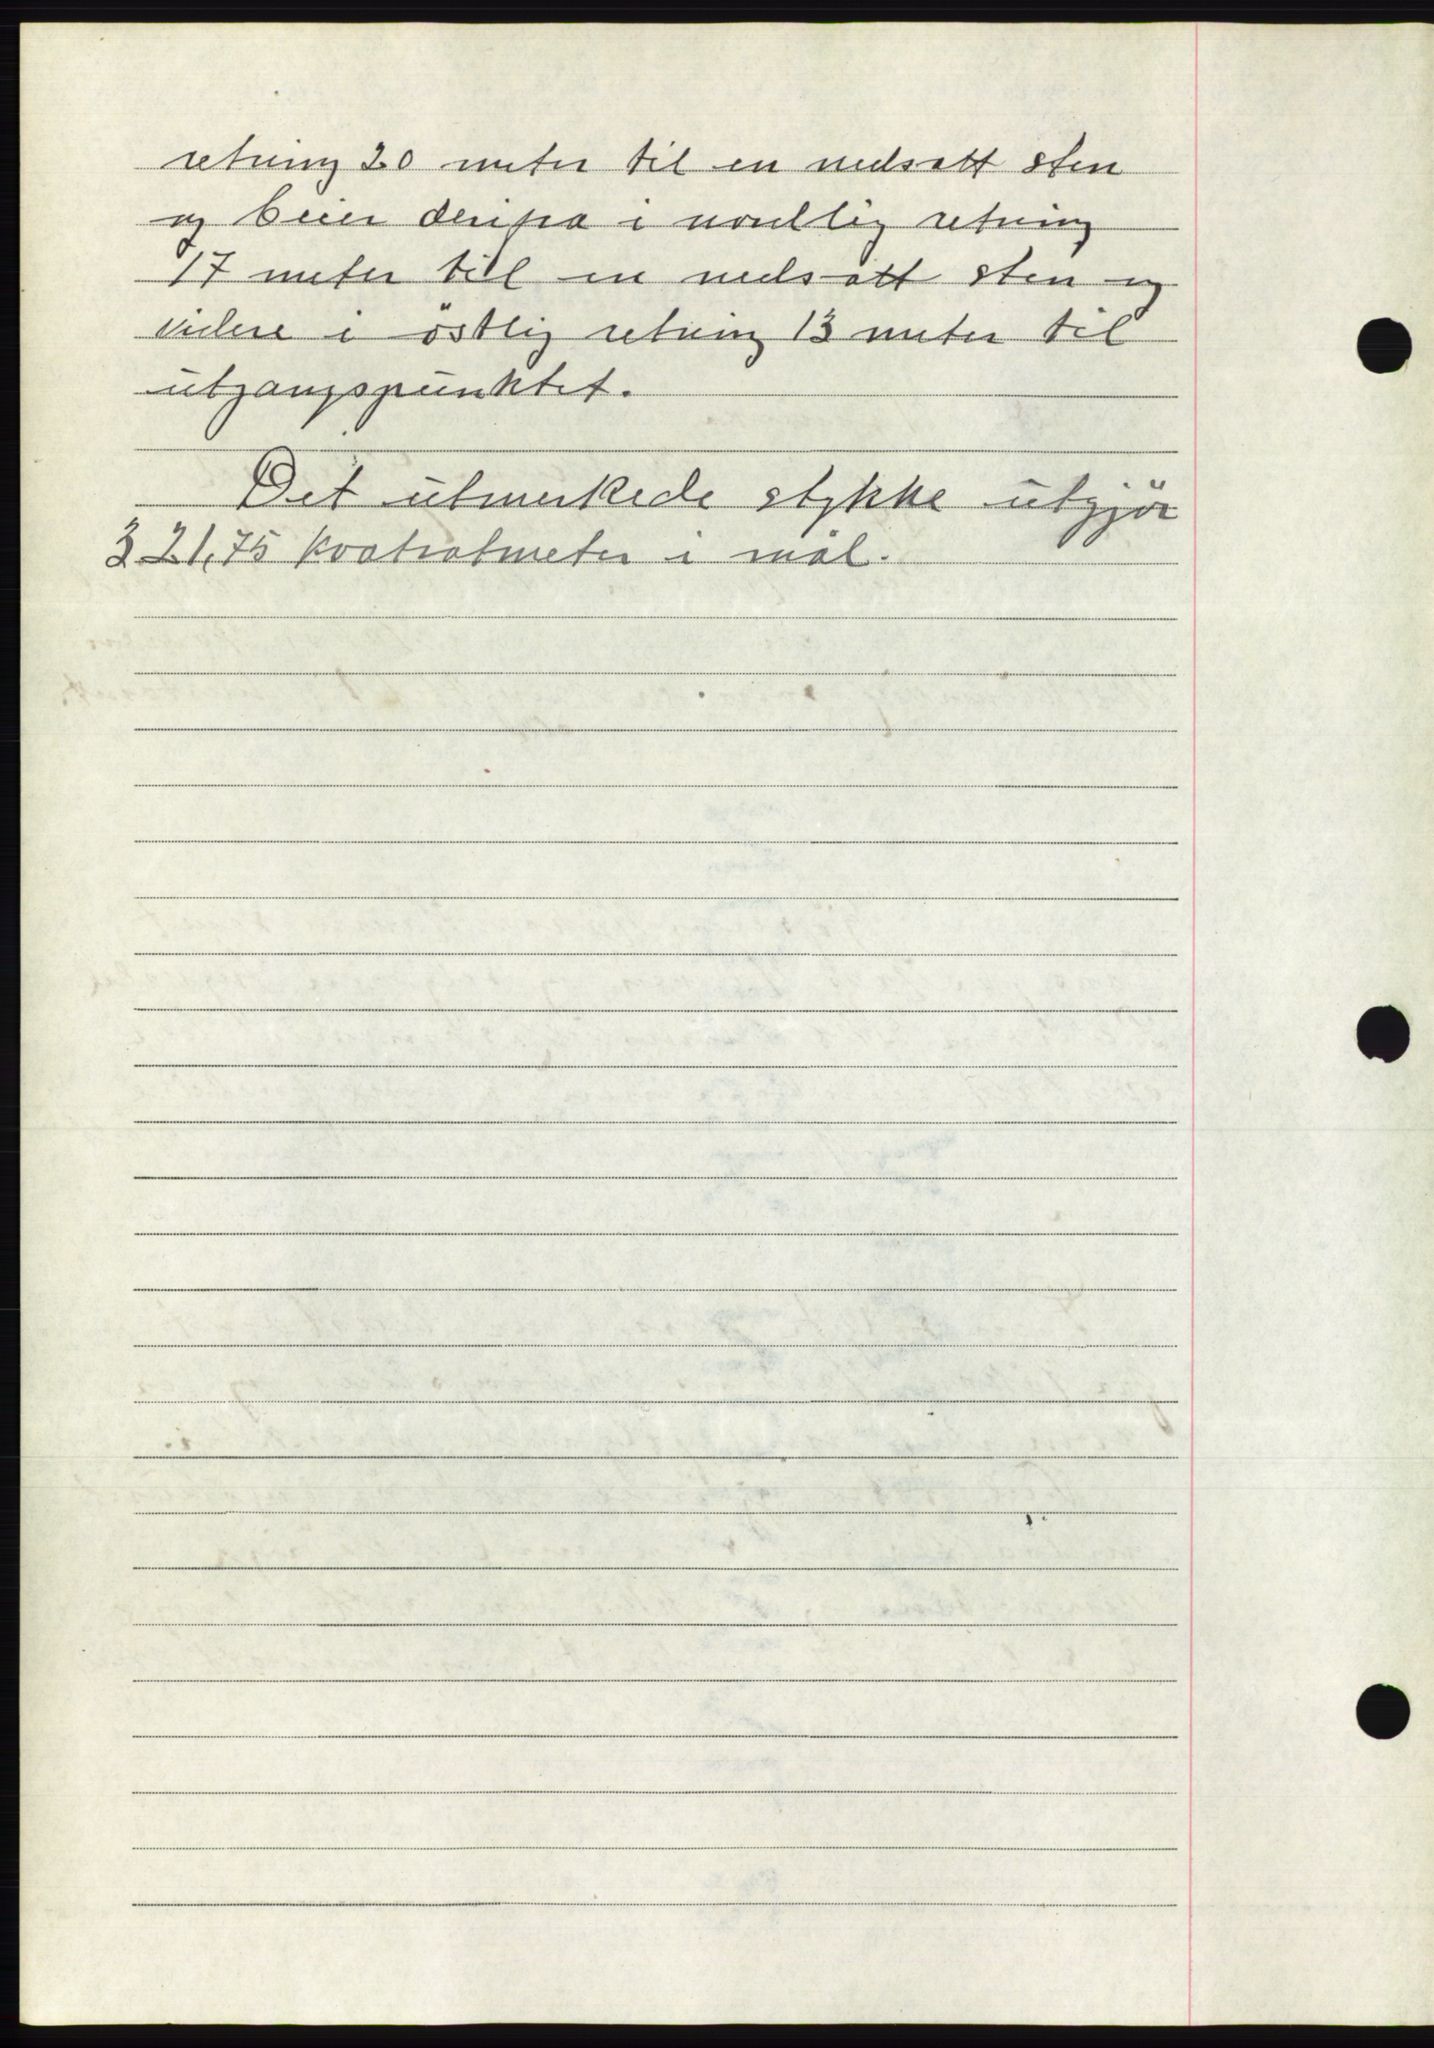 retning 20 meter til en nedsatt sten
og beier derifra i nordlig retning
17 meter till en nedsatt sten og
videre i östlig retning 13 meter til
utgangspunktet.
Det utmerkede stykke utgjør
321,75 kvatratmeter i mål.